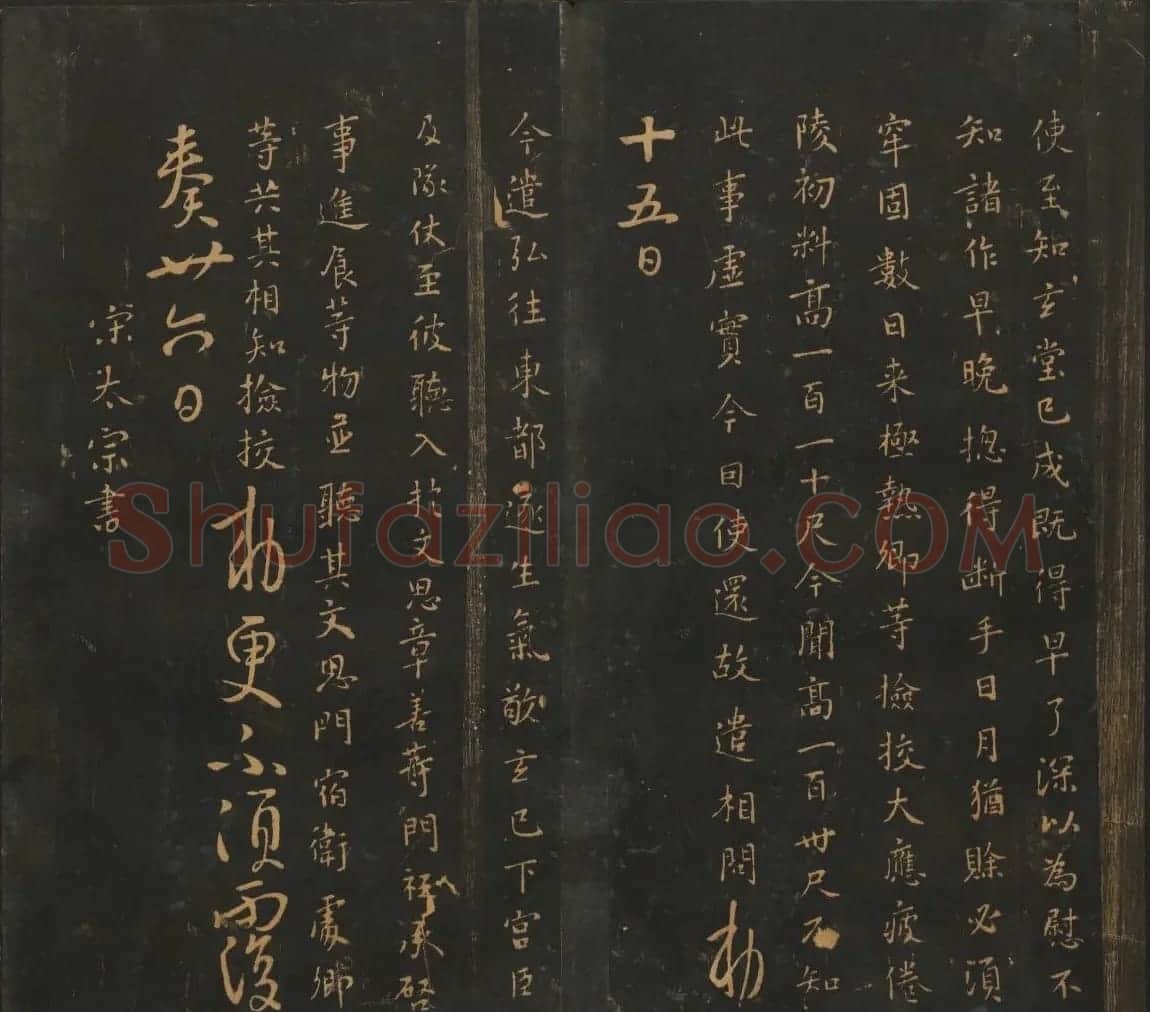 使至知玄堂已成既得早了深以為慰不
知諸作早晚揔得断手日月猶賖必須
牢固數日来極熱卿等撿挍大應疲倦
陵初料髙一百一十尺今聞髙一百卅尺不知
此事虛實今因使還故遣相問勑
十五日
今遣弘往東都逐生氣敬玄已下宫臣
及隊仗至彼聽入於文思章善等門祗承啓
事進食等物並聽其文思門宿衛處卿
等共其相知撿挍勑更不須覆
奏廿六日
宋太宗書
Shufaziliao.COM